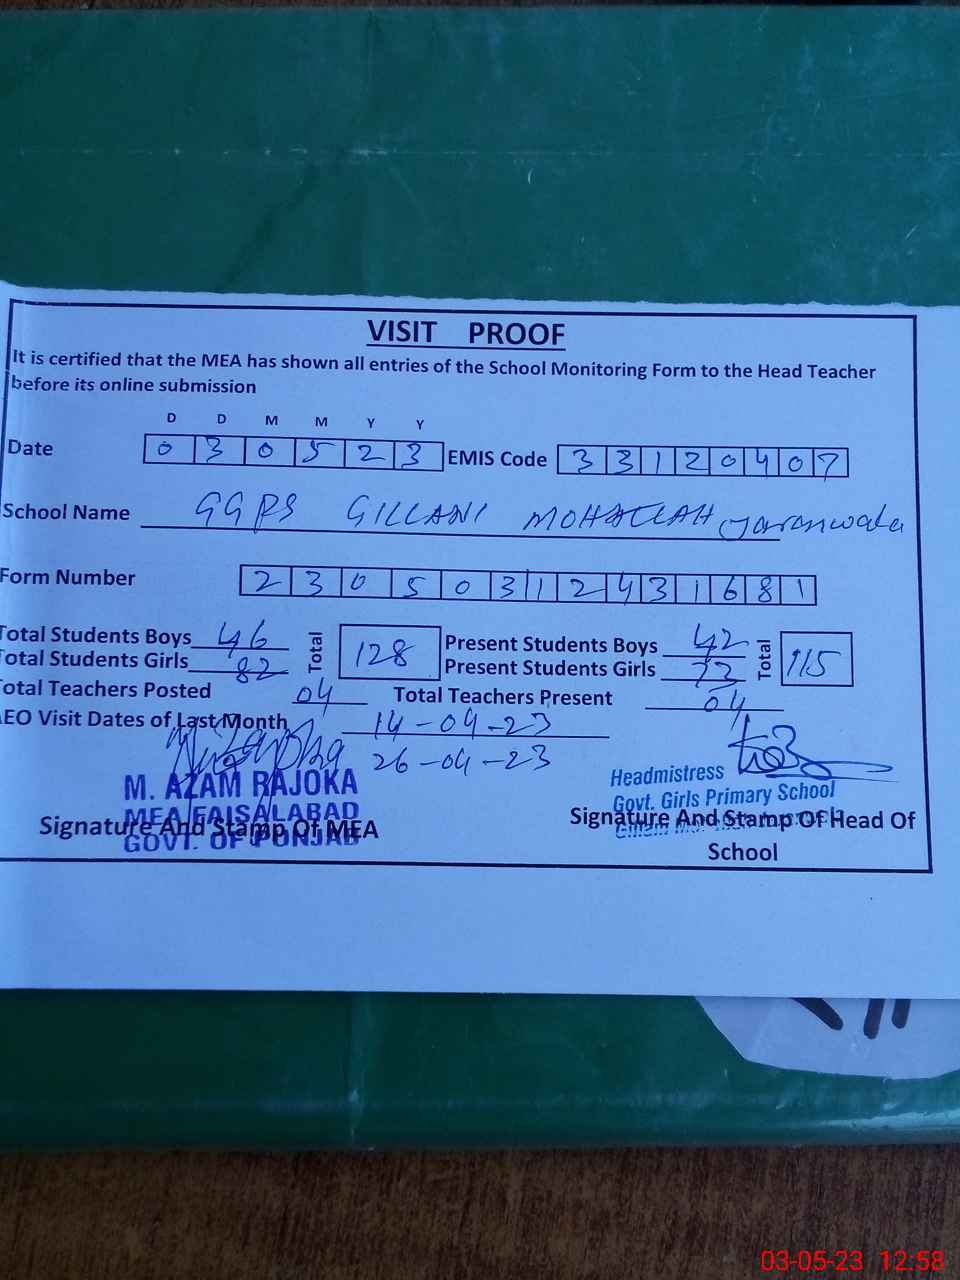 VISIT PROOF
It is certified that the MEA has shown all entries of the School Monitoring Form to the Head Teacher
before its online submission
D D M M Y Y
Date 0 3 0 5 2 3 EMIS Code 3 3 1 2 0 4 0 7
School Name GGPS GILLANI MOHALLAH Jaranwala
Form Number 2 3 0 5 0 3 1 2 4 3 1 6 8 1
Total Students Boys 46 Total 128 Present Students Boys 42 Total 115
Total Students Girls 82 Present Students Girls 73
Total Teachers Posted 04 Total Teachers Present 04
AEO Visit Dates of Last Month 14-04-23
26-04-23
M. AZAM RAJOKA
MEA FAISALABAD
GOVT. OF PUNJAB
Signature And Stamp Of MEA
Headmistress
Govt. Girls Primary School
Signature And Stamp Of Head Of
School
03-05-23 12:58